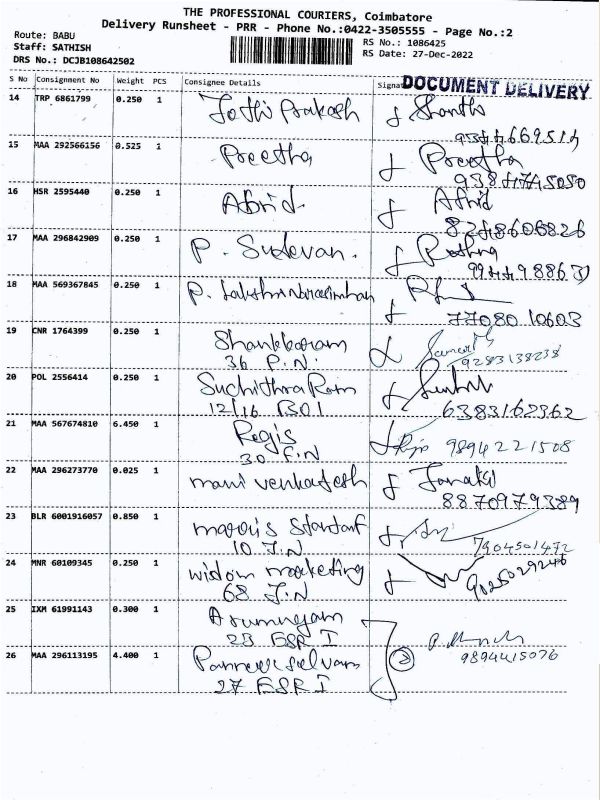 THE PROFESSIONAL COURIERS, Coimbatore
Delivery Runsheet - PRR - Phone No.:0422-3505555 - Page No.:2
Route: BABU
Staff: SATHISH
DRS No.: DCJB108642502
RS No.: 1086425
RS Date: 27-Dec-2022
S No Consignment No Weight PCS Consignee Details Signat
DOCUMENT DELIVERY
14 TRP 6861799 0.250 1 Jothi Prakash Shantha
15 MAA 292566156 0.525 1 Preetha Preetha
16 HSR 2595440 0.250 1 Afrid
8248606826
17 MAA 296842909 0.250 1 P. Sudevan.
18 MAA 569367845 0.250 1 P. Lakshmi Narasimhan
77080 10603
19 CNR 1764399 0.250 1 Shankkaram
36 P.N.
9283138238
20 POL 2556414 0.250 1 Suchithra Ram
12/16
6383162362
21 MAA 567674810 6.450 1 Regis
30 F.N
9894221508
22 MAA 296273770 0.025 1 mani venkatesh Janaki
8870979389
23 BLR 6001916057 0.850 1
10 J.N
7904501472
24 MNR 60109345 0.250 1 wisdom marketing
68 J.N
9025029246
25 IXM 61991143 0.300 1 Arumugam
23 ESR I
26 MAA 296113195 4.400 1 Panneerselvam 2
27 ESR I
9894415076